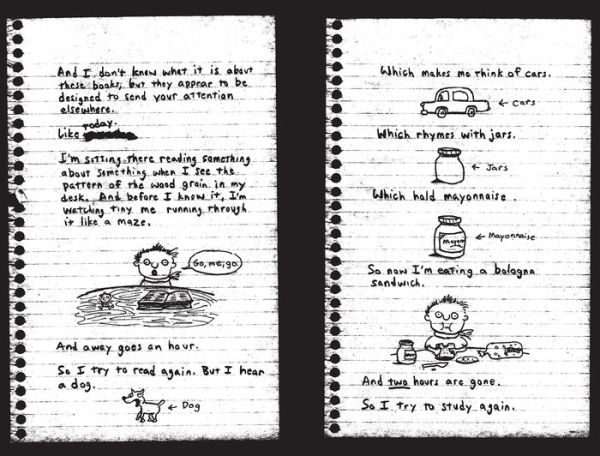 And I don't know what it is about
these books, but they appear to be
designed to send your attention
elsewhere.
today.
Like
I'm sitting there reading something
about something when I see the
pattern of the wood grain in my
desk. And before I know it, I'm
watching tiny me running through
it like a maze.
Go, me, go.
And away goes an hour.
So I try to read again. But I hear
a dog.
← Dog
Which makes me think of cars.
← cars
Which rhymes with jars.
← Jars
Which hold mayonnaise.
Mayon
← Mayonnaise
So now I'm eating a bologna
sandwich.
And two hours are gone.
So I try to study again.